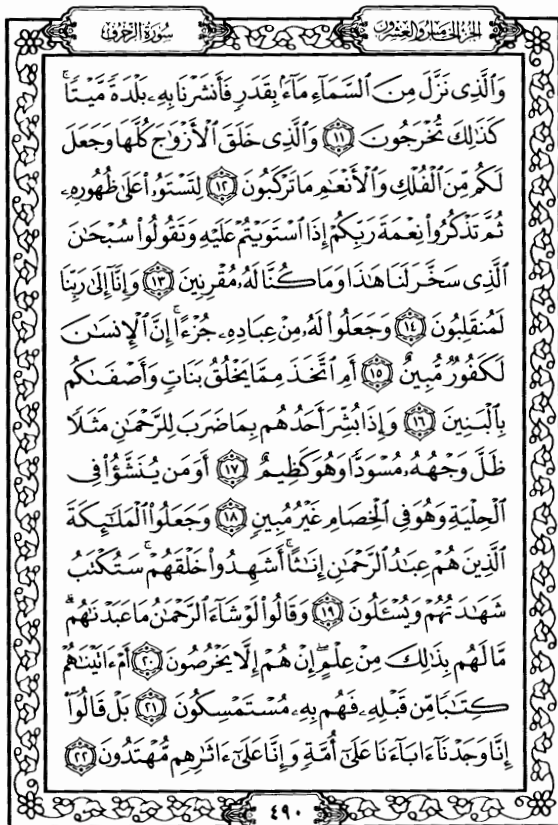 الجزء الخامس والعشرون
سورة الزخرف
وَٱلَّذِى نَزَّلَ مِنَ ٱلسَّمَآءِ مَآءًۢ بِقَدَرٍ فَأَنشَرْنَا بِهِۦ بَلْدَةً مَّيْتًا ۚ
كَذَٰلِكَ تُخْرَجُونَ ﴿١١﴾ وَٱلَّذِى خَلَقَ ٱلْأَزْوَٰجَ كُلَّهَا وَجَعَلَ
لَكُم مِّنَ ٱلْفُلْكِ وَٱلْأَنْعَٰمِ مَا تَرْكَبُونَ ﴿١٢﴾ لِتَسْتَوُۥا۟ عَلَىٰ ظُهُورِهِۦ
ثُمَّ تَذْكُرُوا۟ نِعْمَةَ رَبِّكُمْ إِذَا ٱسْتَوَيْتُمْ عَلَيْهِ وَتَقُولُوا۟ سُبْحَٰنَ
ٱلَّذِى سَخَّرَ لَنَا هَٰذَا وَمَا كُنَّا لَهُۥ مُقْرِنِينَ ﴿١٣﴾ وَإِنَّآ إِلَىٰ رَبِّنَا
لَمُنقَلِبُونَ ﴿١٤﴾ وَجَعَلُوا۟ لَهُۥ مِنْ عِبَادِهِۦ جُزْءًا ۚ إِنَّ ٱلْإِنسَٰنَ
لَكَفُورٌ مُّبِينٌ ﴿١٥﴾ أَمِ ٱتَّخَذَ مِمَّا يَخْلُقُ بَنَاتٍ وَأَصْفَىٰكُم
بِٱلْبَنِينَ ﴿١٦﴾ وَإِذَا بُشِّرَ أَحَدُهُم بِمَا ضَرَبَ لِلرَّحْمَٰنِ مَثَلًا
ظَلَّ وَجْهُهُۥ مُسْوَدًّا وَهُوَ كَظِيمٌ ﴿١٧﴾ أَوَمَن يُنَشَّؤُا۟ فِى
ٱلْحِلْيَةِ وَهُوَ فِى ٱلْخِصَامِ غَيْرُ مُبِينٍ ﴿١٨﴾ وَجَعَلُوا۟ ٱلْمَلَٰٓئِكَةَ
ٱلَّذِينَ هُمْ عِبَٰدُ ٱلرَّحْمَٰنِ إِنَٰثًا ۚ أَشَهِدُوا۟ خَلْقَهُمْ ۚ سَتُكْتَبُ
شَهَٰدَتُهُمْ وَيُسْـَٔلُونَ ﴿١٩﴾ وَقَالُوا۟ لَوْ شَآءَ ٱلرَّحْمَٰنُ مَا عَبَدْنَٰهُم ۗ
مَّا لَهُم بِذَٰلِكَ مِنْ عِلْمٍ ۖ إِنْ هُمْ إِلَّا يَخْرُصُونَ ﴿٢٠﴾ أَمْ ءَاتَيْنَٰهُمْ
كِتَٰبًا مِّن قَبْلِهِۦ فَهُم بِهِۦ مُسْتَمْسِكُونَ ﴿٢١﴾ بَلْ قَالُوٓا۟
إِنَّا وَجَدْنَآ ءَابَآءَنَا عَلَىٰٓ أُمَّةٍ وَإِنَّا عَلَىٰٓ ءَاثَٰرِهِم مُّهْتَدُونَ ﴿٢٢﴾
٤٩٠